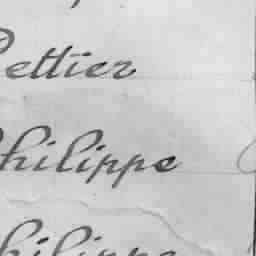 Pettier
Philippe
Philippe